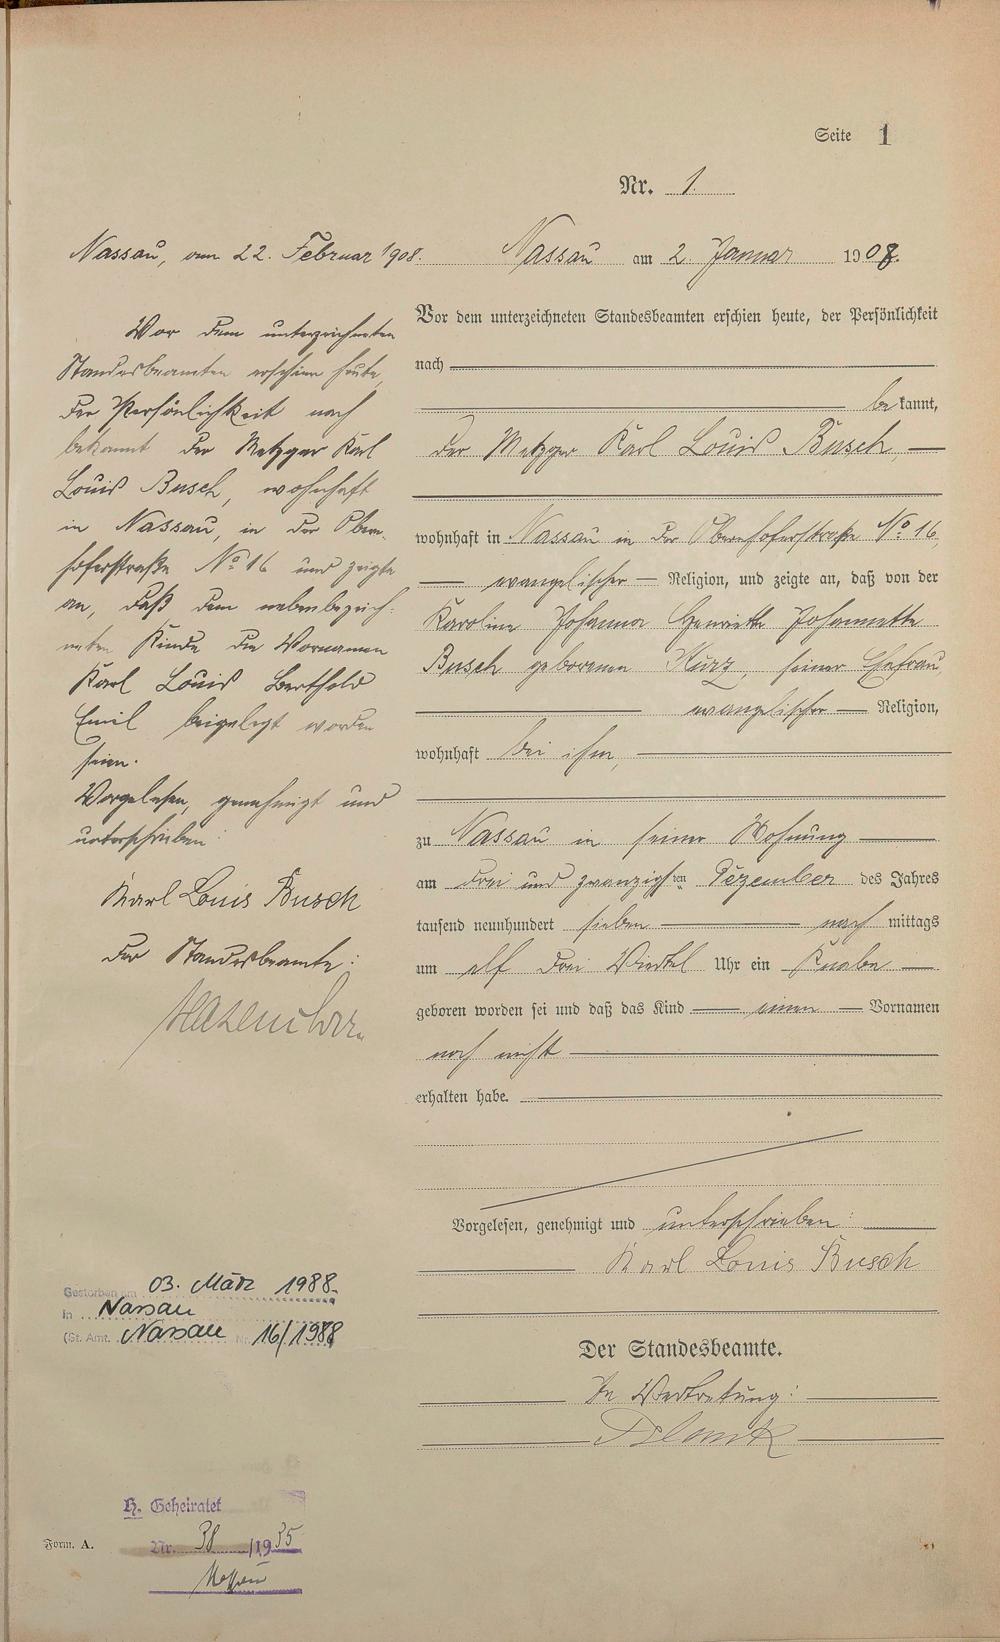 Seite 1
Nr. 1.
Nassau am 2. Januar 1908.
Vor dem unterzeichneten Standesbeamten erschien heute, der Persönlichkeit
nach
bekannt,
der Metzger Karl Louis Busch,
wohnhaft in Nassau in der Obernhoferstraße No. 16,
evangelischer Religion, und zeigte an, daß von der
Karoline Johanna Henriette Johannette
Busch geborenen Kurz, seiner Ehefrau,
evangelischer Religion,
wohnhaft bei ihm,
zu Nassau in seiner Wohnung
am drei und zwanzigsten Dezember des Jahres
tausend neunhundert sieben nach mittags
um elf drei Viertel Uhr ein Knabe
geboren worden sei und daß das Kind einen Vornamen
noch nicht
erhalten habe.
Vorgelesen, genehmigt und unterschrieben:
Karl Louis Busch
Der Standesbeamte.
In Vertretung:
Nassau, am 22. Februar 1908.
Vor dem unterzeichneten
Standesbeamten erschien heute,
der Persönlichkeit nach
bekannt der Metzger Karl
Louis Busch, wohnhaft
in Nassau, in der Obern-
hoferstraße No. 16 und zeigte
an, daß dem nebenbezeich-
neten Kinde die Vornamen
Karl Louis Berthold
Emil beigelegt worden
seien.
Vorgelesen, genehmigt und
unterschrieben:
Karl Louis Busch
Der Standesbeamte:
Gestorben am 03. März 1988
in Nassau
(St. Amt. Nassau Nr. 16/1988
H. Geheiratet
Nr. 38 /1935
Nassau
Form. A.